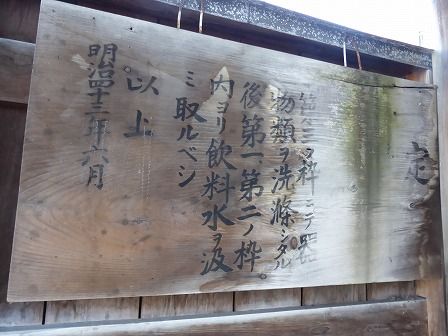 定
第三ノ枠ニテ器
物類ヲ洗滌シタル
後第一第二ノ枠
内ヨリ飲料水ヲ汲
ミ取ルベシ
以上
明治四十二年六月